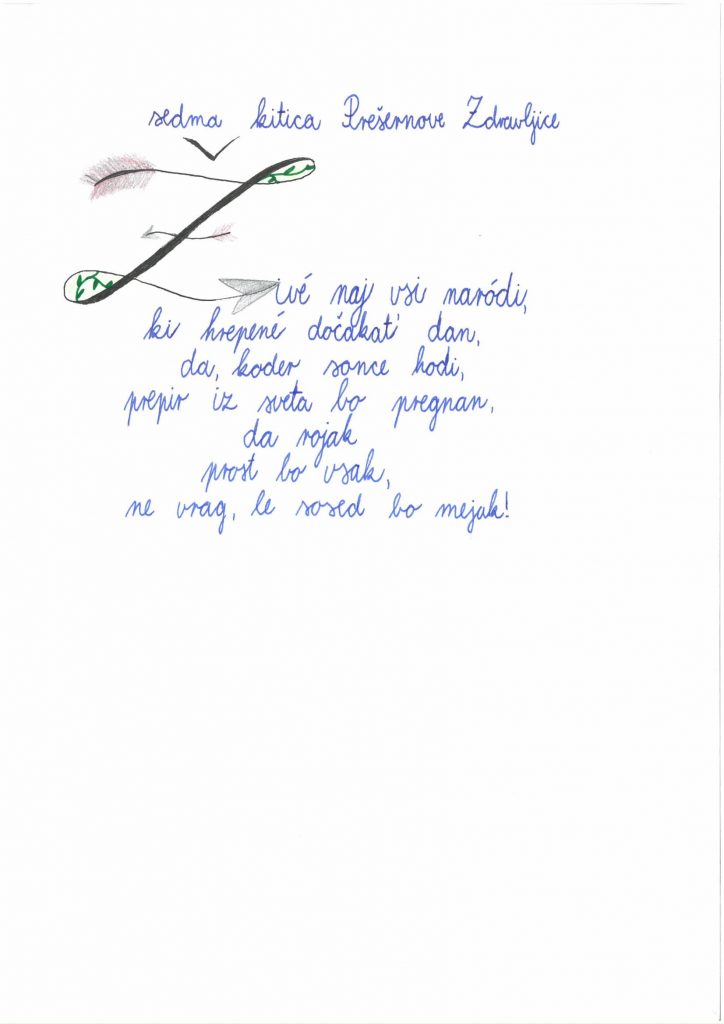 sedma kitica Prešernove Zdravljice
Živé naj vsi naródi,
ki hrepené dočakat' dan,
da, koder sonce hodi,
prepir iz sveta bo pregnan,
da rojak
prost bo vsak,
ne vrag, le sosed bo mejak!